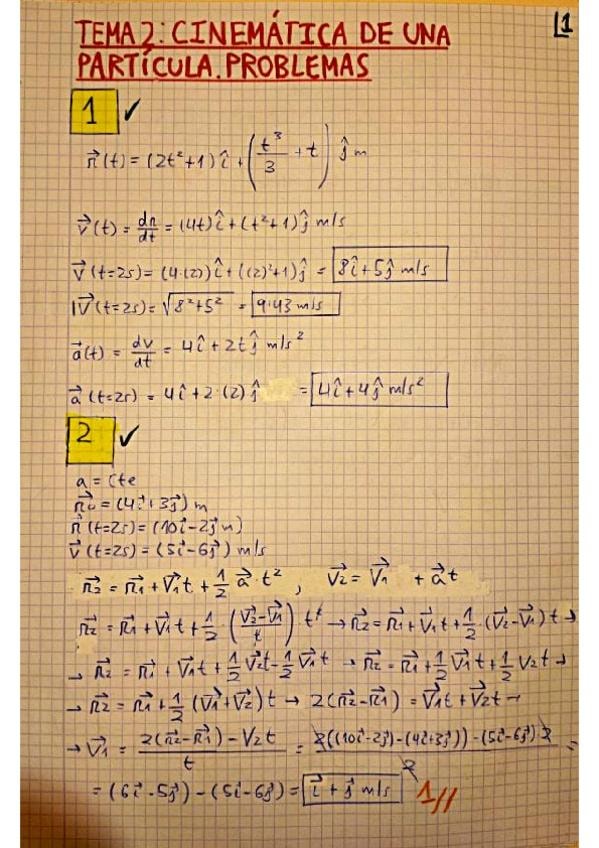 1
TEMA 2: CINEMÁTICA DE UNA
PARTÍCULA. PROBLEMAS
1 ✓
r⃗(t) = (2t²+1) î + (t³/3 + t) ĵ m
v⃗(t) = dr/dt = (4t) î + (t²+1) ĵ m/s
v⃗(t=2s) = (4·(2)) î + ((2)²+1) ĵ = 8î+5ĵ m/s
|v⃗(t=2s) = √8²+5² = 9'43 m/s
a⃗(t) = dv/dt = 4î + 2tĵ m/s²
a⃗(t=2s) = 4î + 2·(2) ĵ = 4î+4ĵ m/s²
2 ✓
a = Cte
r⃗₀ = (4i⃗+3j⃗) m
r⃗(t=2s) = (10i⃗-2j⃗ m)
v⃗(t=2s) = (5i⃗-6j⃗) m/s
r⃗₂ = r⃗₁ + v⃗₁t + 1/2 a⃗·t² , v⃗₂ = v⃗₁ + a⃗t
r⃗₂ = r⃗₁ + v⃗₁t + 1/2 · (v⃗₂-v⃗₁/t) · t² → r⃗₂ = r⃗₁ + v⃗₁t + 1/2 · (v⃗₂-v⃗₁) t →
→ r⃗₂ = r⃗₁ + v⃗₁t + 1/2 v⃗₂t - 1/2 v⃗₁t → r⃗₂ = r⃗₁ + 1/2 v⃗₁t + 1/2 v₂t →
→ r⃗₂ = r⃗₁ + 1/2 (v⃗₁+v⃗₂)t → 2(r⃗₂-r⃗₁) = v⃗₁t + v⃗₂t →
→ v⃗₁ = 2(r⃗₂-r⃗₁) - v₂t / t = 2((10i⃗-2j⃗)-(4i⃗+3j⃗)) - (5i⃗-6j⃗) 2 / 2 =
= (6i⃗-5j⃗) - (5i⃗-6j⃗) = i⃗ + j⃗ m/s 1//